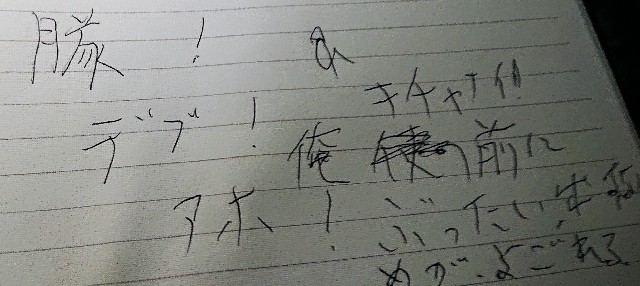 豚!
デブ!
アホ!
キチャナイ!!
俺の前に
ぶったい
めが、よごれる